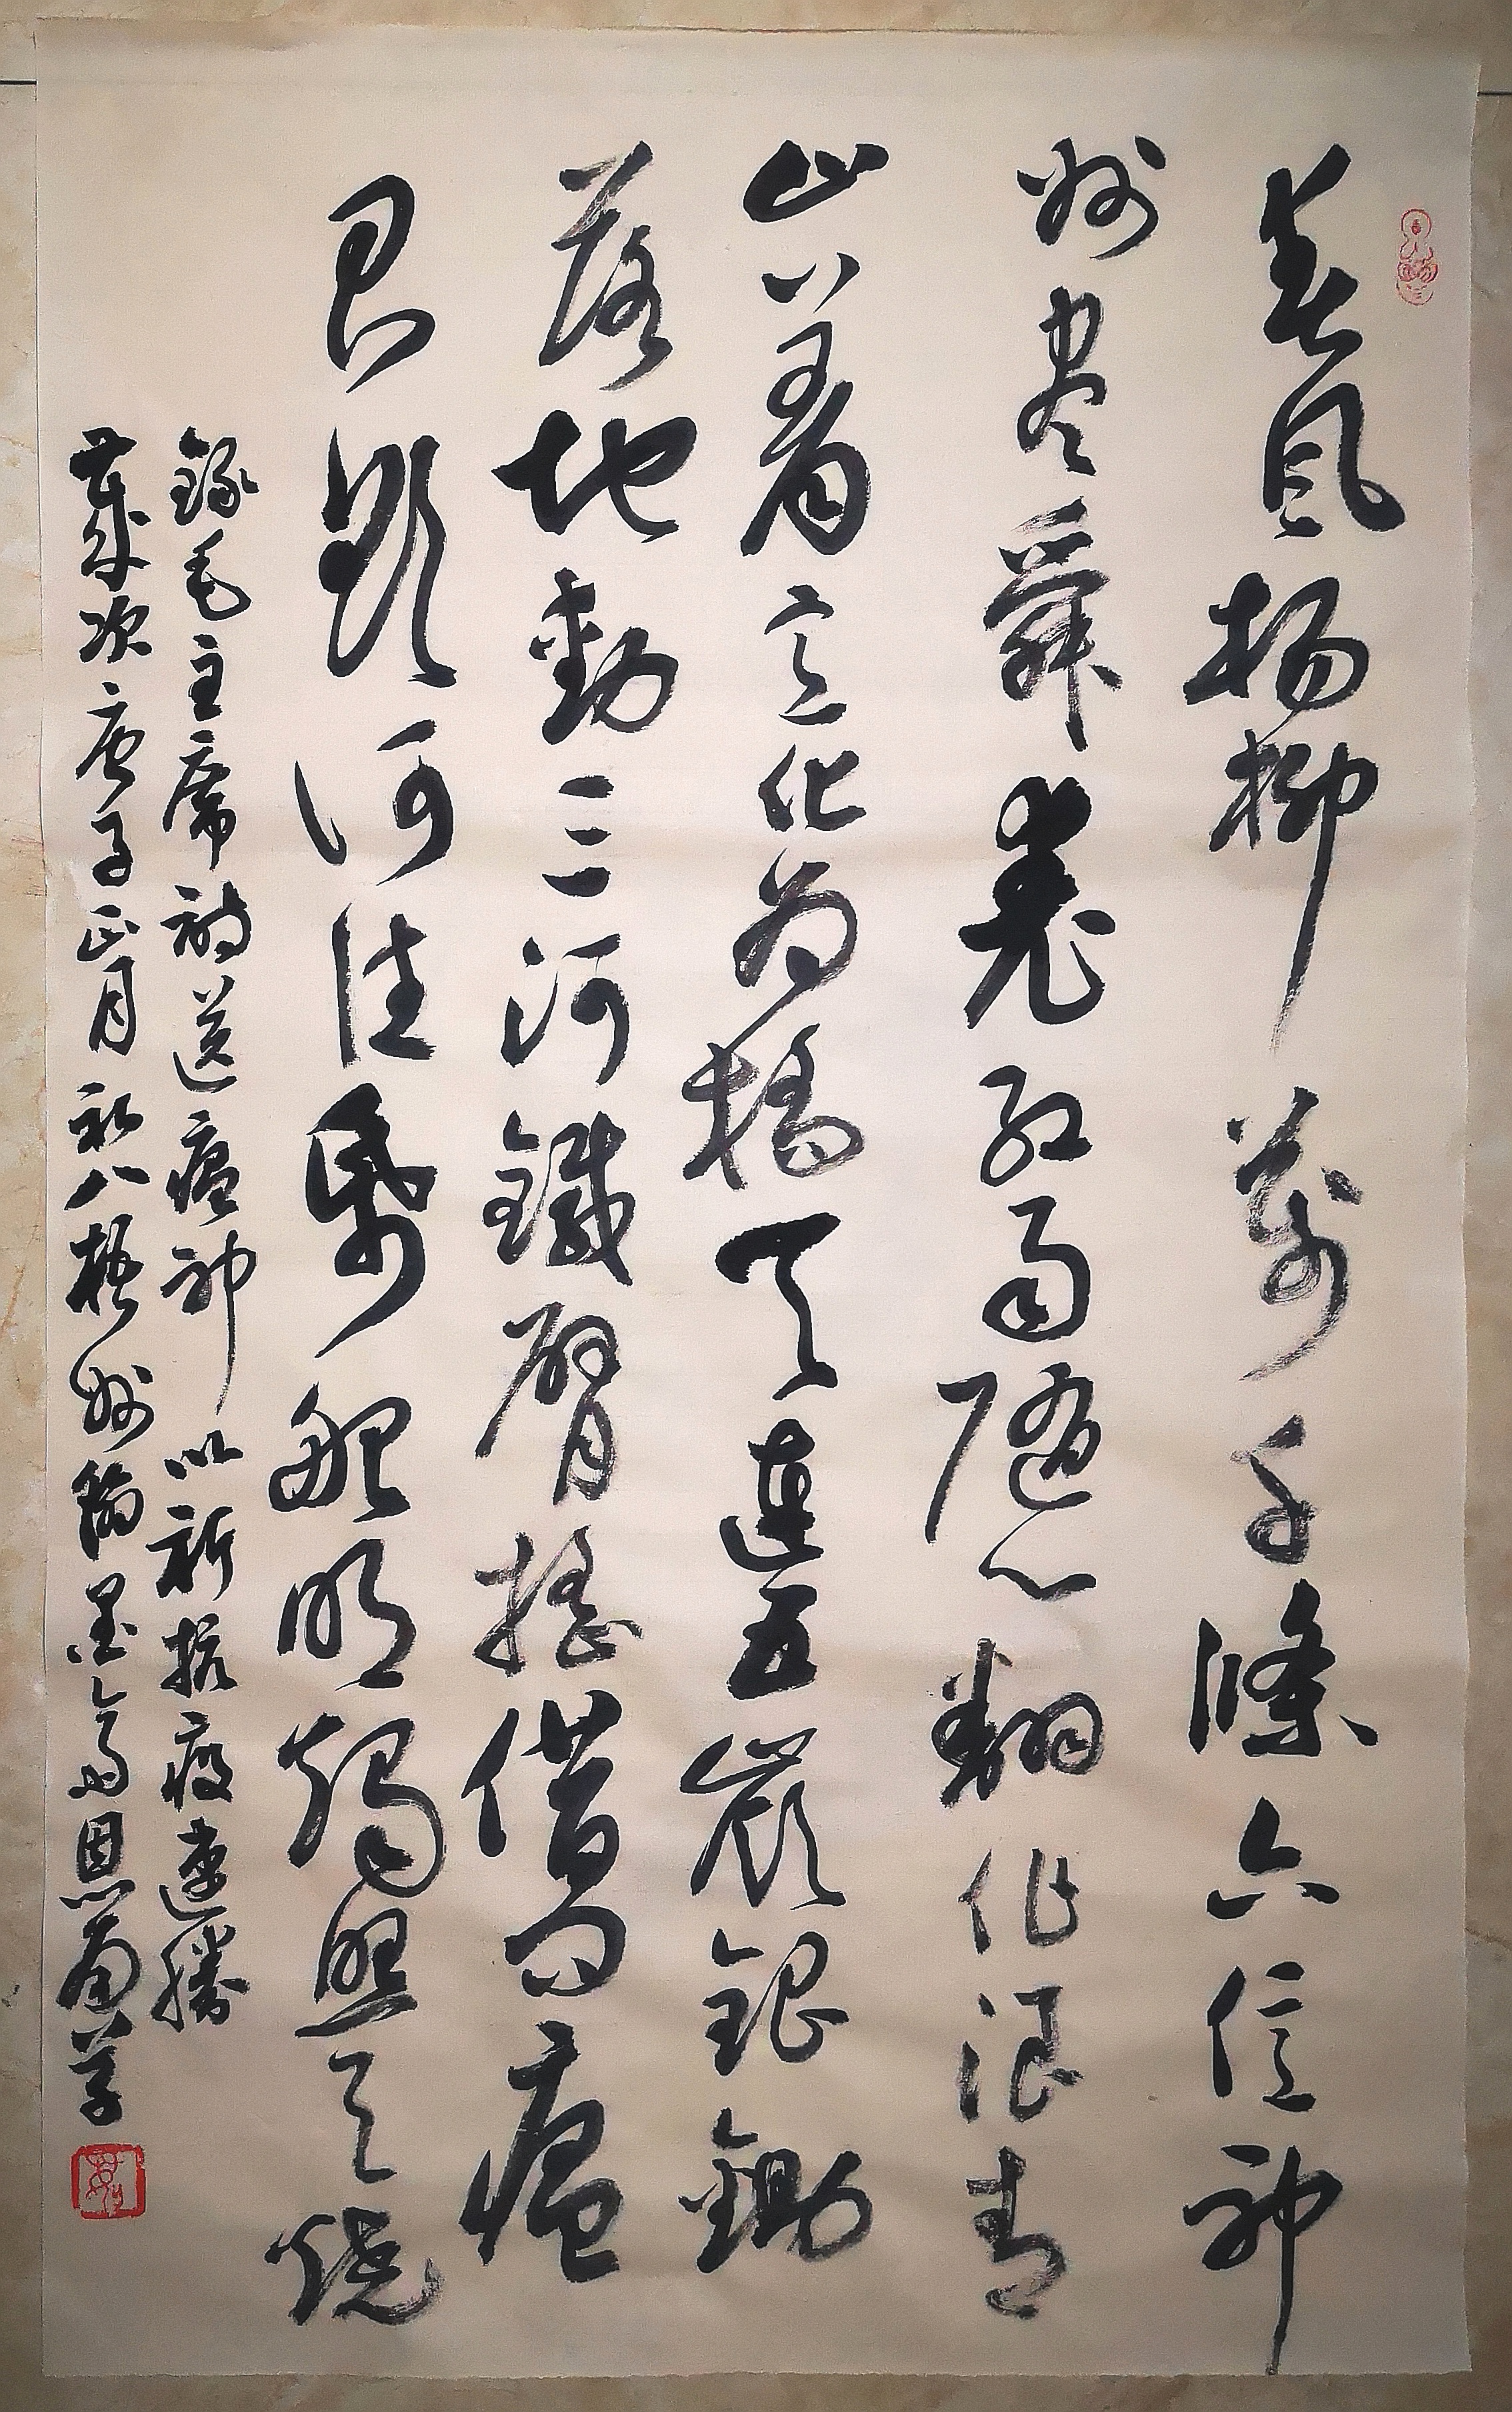 春風楊柳萬千條六億神
州盡舜堯紅雨隨心翻作浪青
山着意化為橋天連五嶺銀鋤
落地動三河鐵臂搖借問瘟
君欲何往紙船明燭照天燒
錄毛主席詩送瘟神以祈抗疫速勝
歲次庚子正月初八梧州翰墨